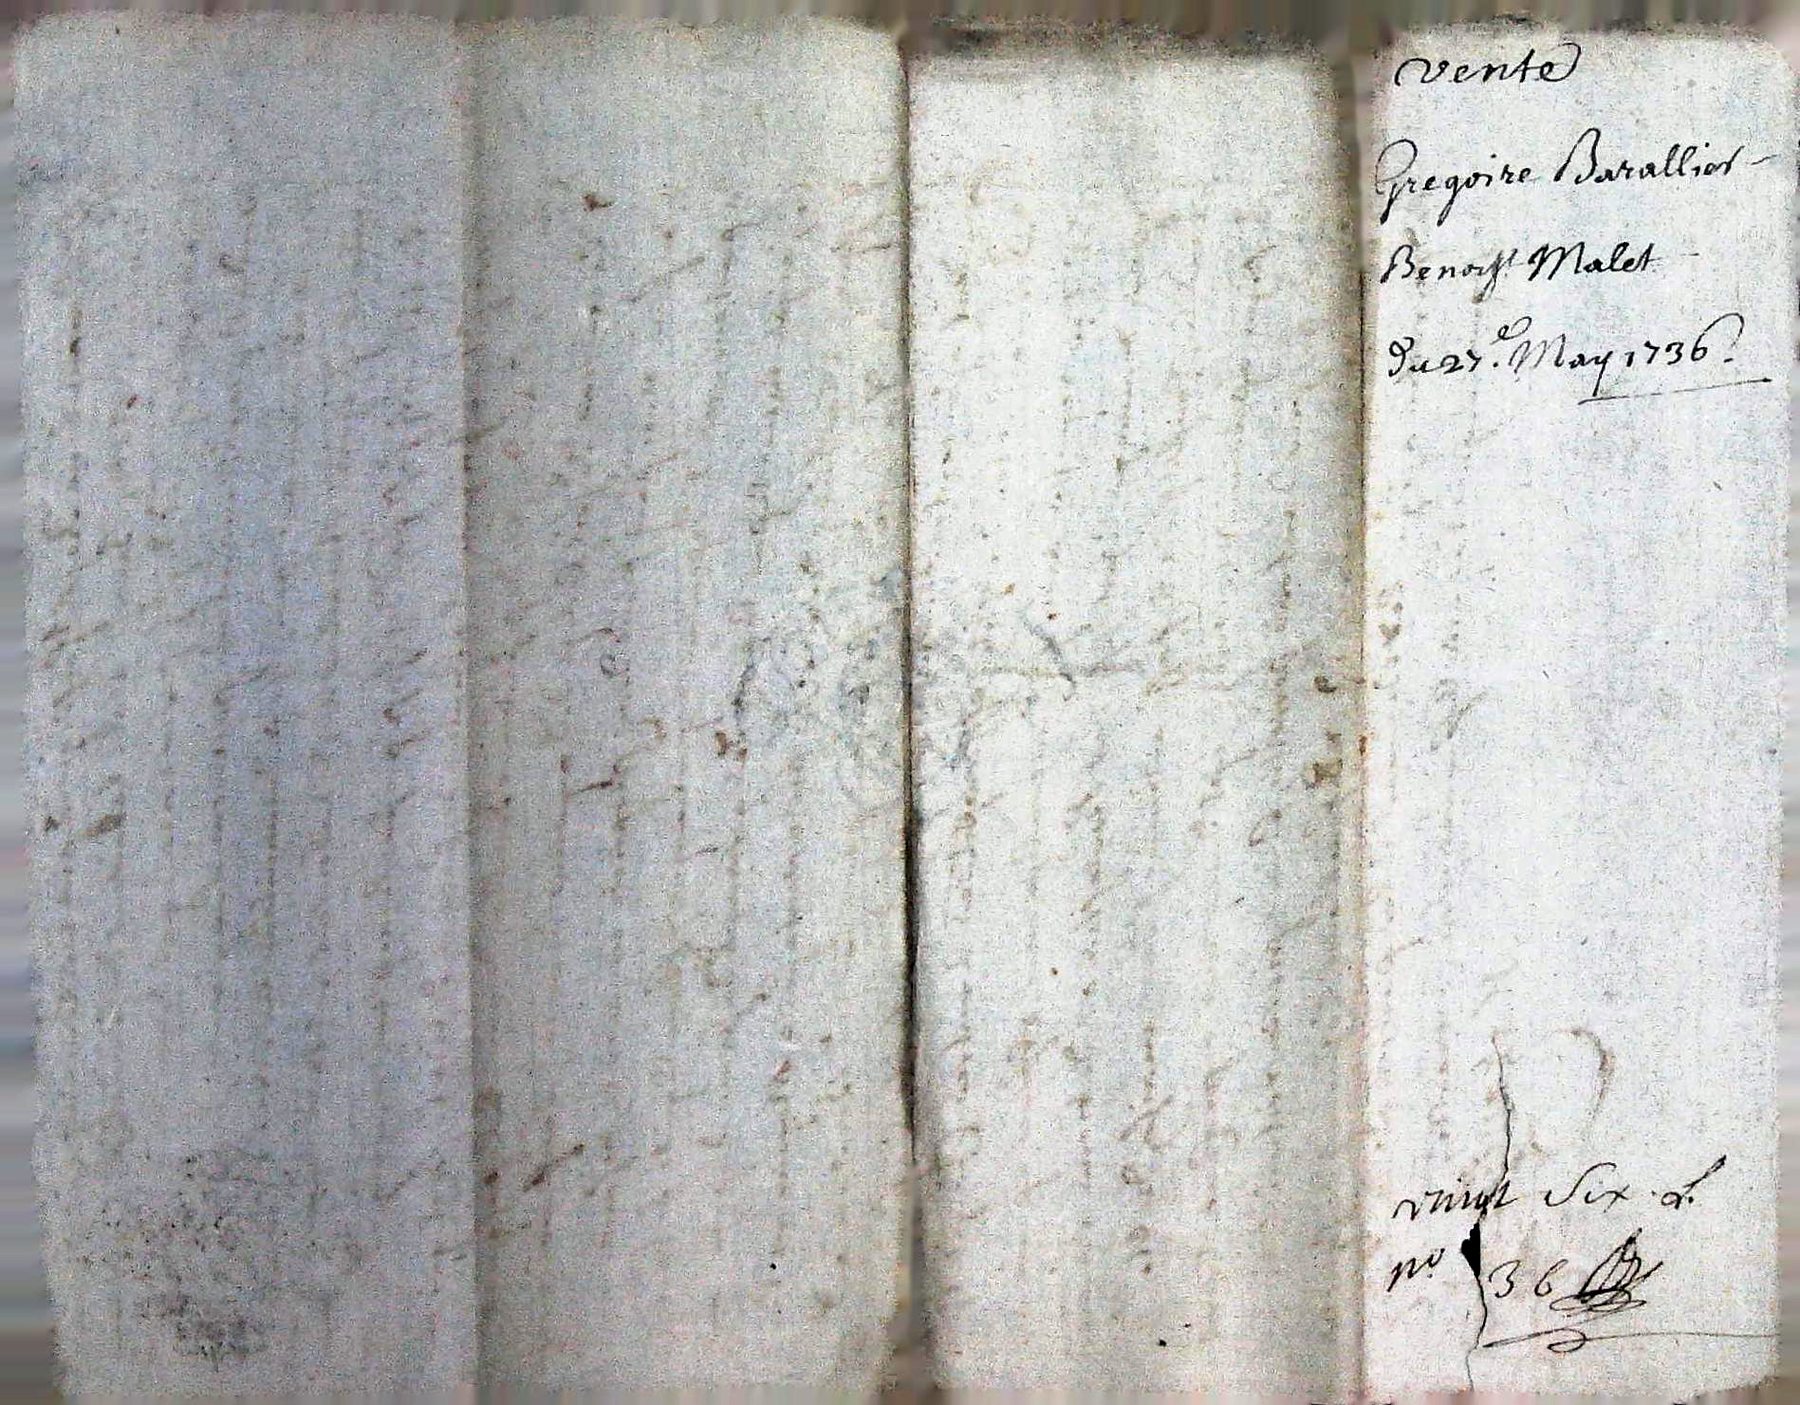 vente
Gregoire Barallior
Benoist Malet
du 27.e May 1736.
vingt Six L.
no. 36